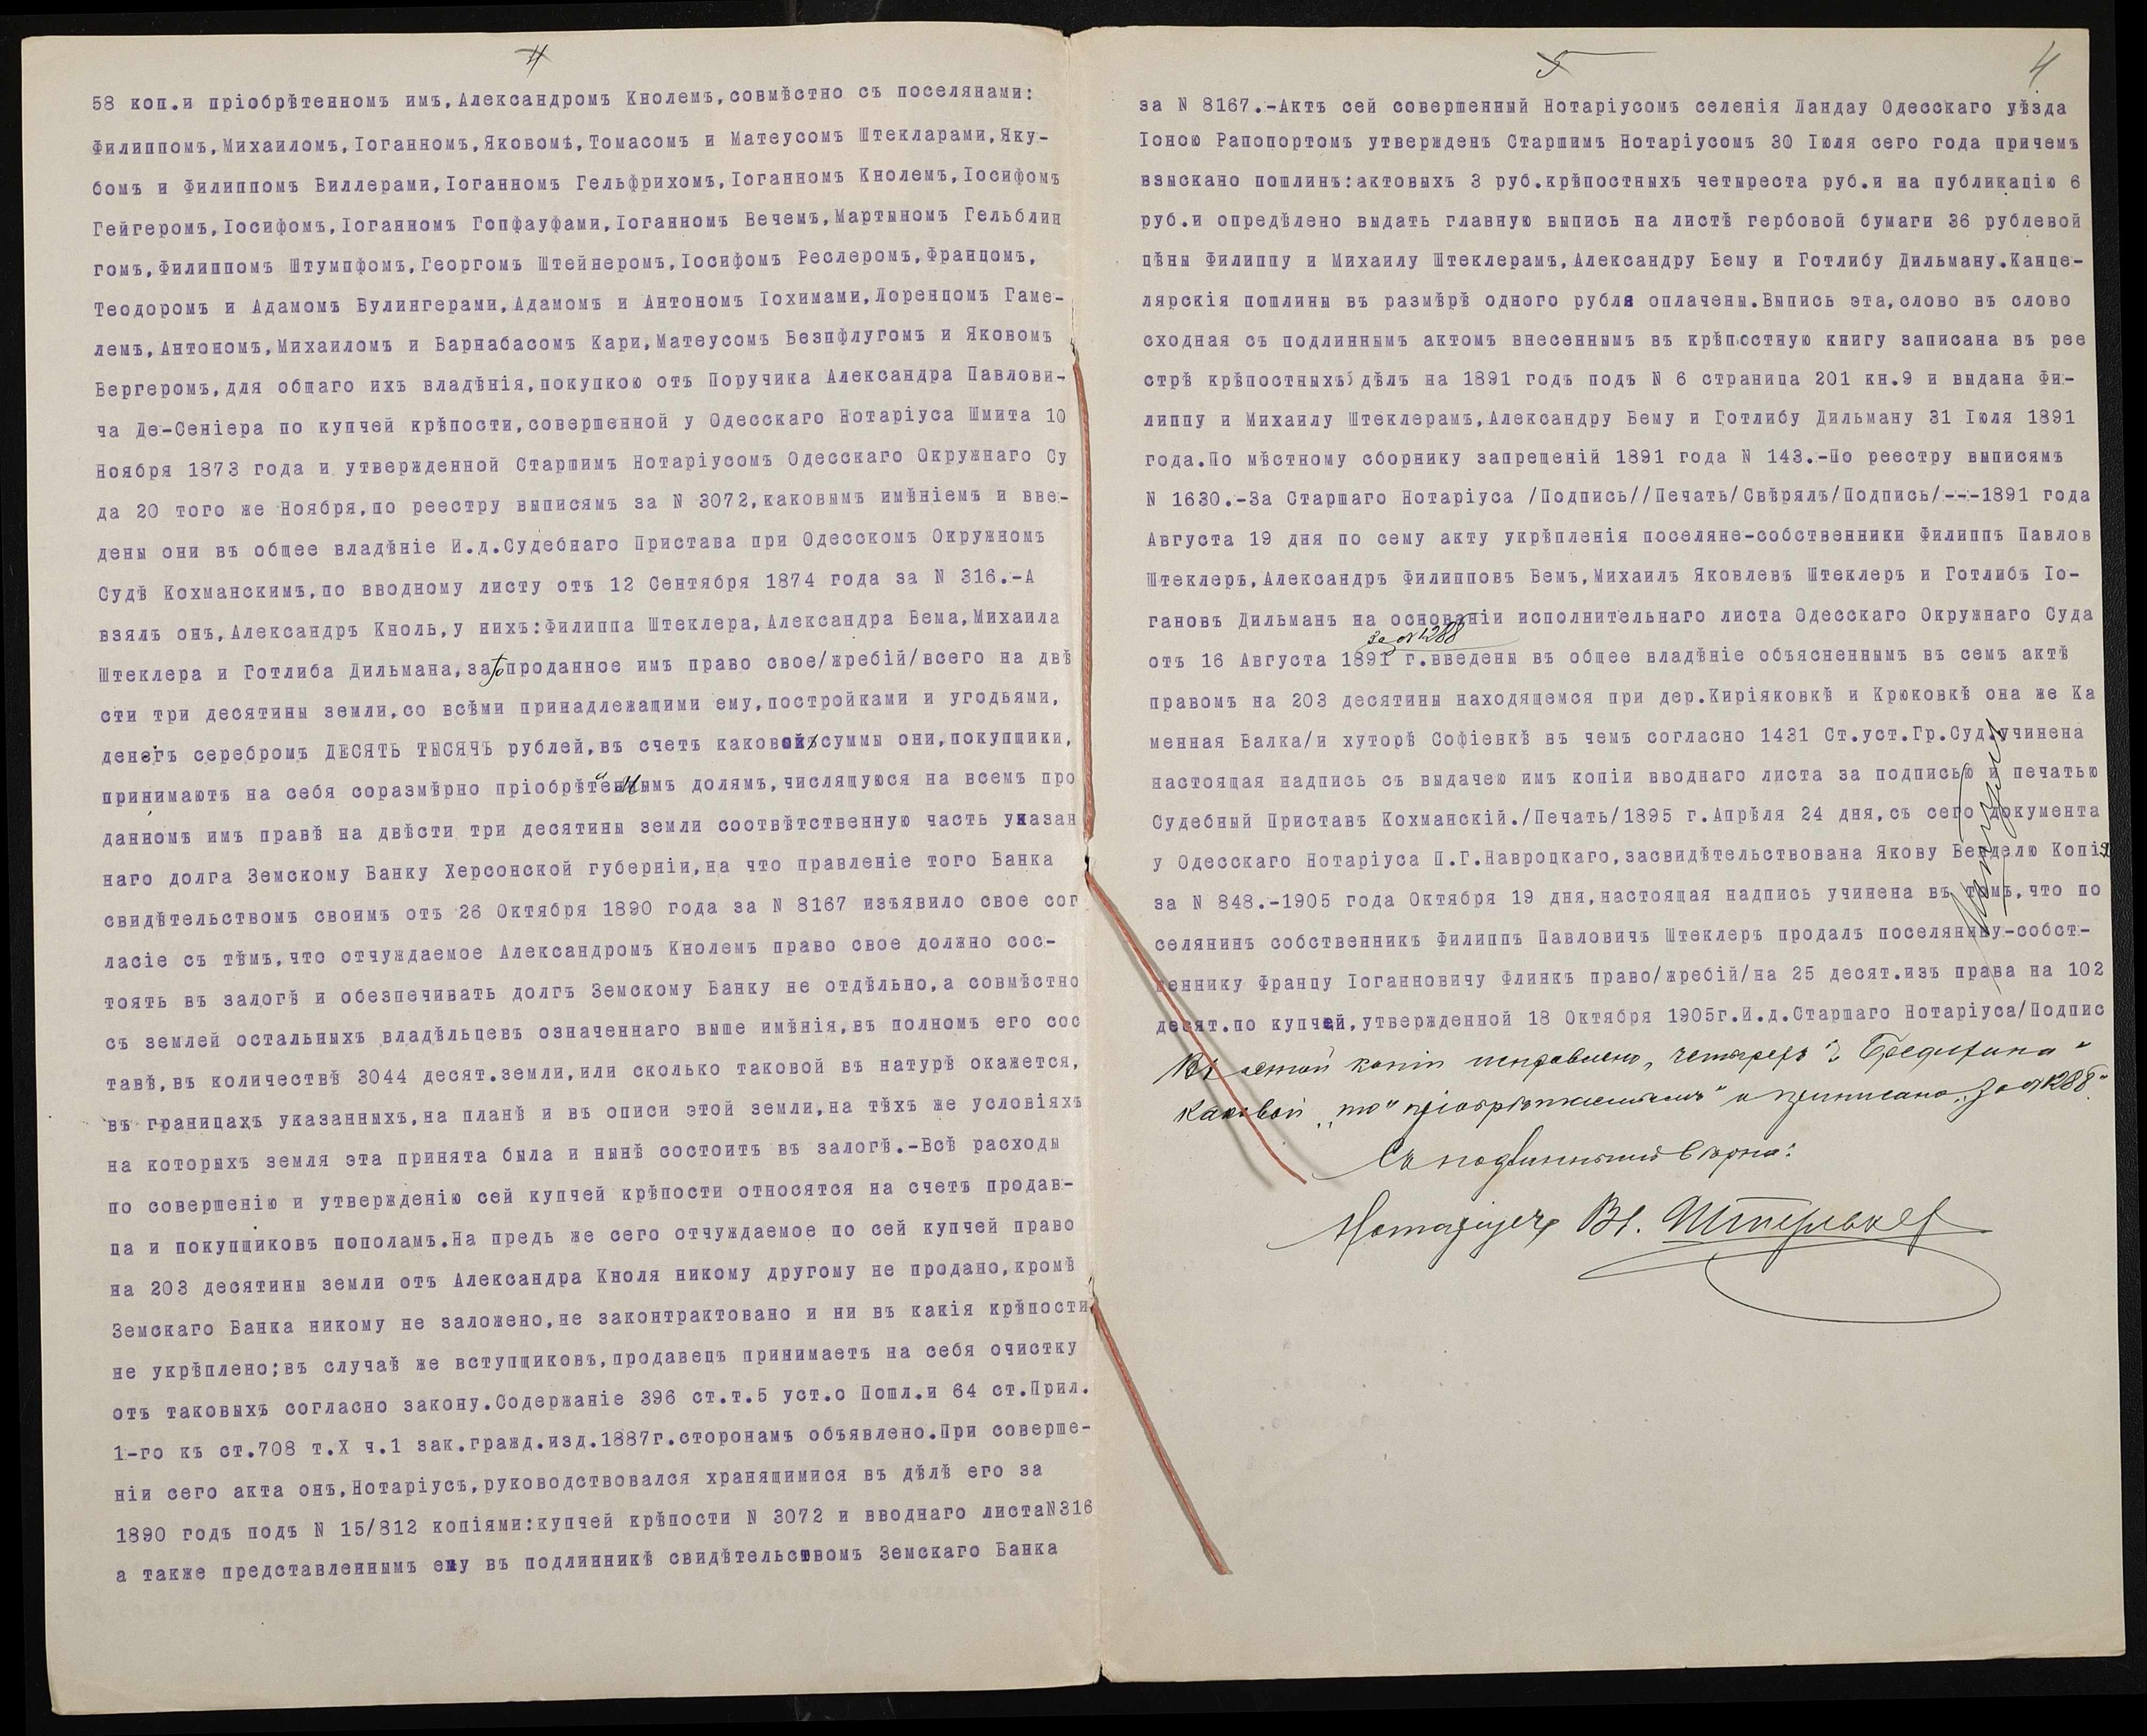 4
58 коп.и пріобрѣтенномъ имъ,Александромъ Кнолемъ,совмѣстно съ поселянами:
Филиппомъ,Михаиломъ,Іоганномъ,Яковомъ,Томасомъ и Матеусомъ Штекларами,Яку-
бомъ и Филиппомъ Виллерами,Іоганномъ Гельфрихомъ,Іоганномъ Кнолемъ,Іосифомъ
Гейгеромъ,Іосифомъ,Іоганномъ Гопфауфами,Іоганномъ Вечемъ,Мартыномъ Гельблин
гомъ,Филиппомъ Штумпфомъ,Георгомъ Штейнеромъ,Іосифомъ Реслеромъ,Францомъ,
Теодоромъ и Адамомъ Булингерами,Адамомъ и Антономъ Іохимами,Лоренцомъ Гаме-
лемъ,Антономъ,Михаиломъ и Варнабасомъ Кари,Матеусомъ Везпфлугомъ и Яковомъ
Бергеромъ,для общаго ихъ владѣнія,покупкою отъ Поручика Александра Павлови-
ча Де-Сеніера по купчей крѣпости,совершенной у Одесскаго Нотаріуса Шмита 10
Ноября 1873 года и утвержденной Старшимъ Нотаріусомъ Одесскаго Окружнаго Су
да 20 того же Ноября,по реестру выписямъ за N 3072,каковымъ имѣніемъ и вве-
дены они въ общее владѣніе И.д.Судебнаго Пристава при Одесскомъ Окружномъ
Судѣ Кохманскимъ,по вводному листу отъ 12 Сентября 1874 года за N 316.-А
взялъ онъ,Александръ Кноль,у нихъ:Филиппа Штеклера,Александра Бема,Михаила
Штеклера и Готлиба Дильмана,за то проданное имъ право свое/жребій/всего на двѣ
сти три десятины земли,со всѣми принадлежащими ему,постройками и угодьями,
денегъ серебромъ ДЕСЯТЬ ТЫСЯЧЪ рублей,въ счетъ каковой суммы они,покупщики,
принимаютъ на себя соразмѣрно пріобрѣтаемымъ долямъ,числящуюся на всемъ про
данномъ имъ правѣ на двѣсти три десятины земли соотвѣтственную часть указан
наго долга Земскому Банку Херсонской губерніи,на что правленіе того Банка
свидѣтельствомъ своимъ отъ 26 Октября 1890 года за N 8167 изъявило свое сог
ласіе съ тѣмъ,что отчуждаемое Александромъ Кнолемъ право свое должно сос-
тоять въ залогѣ и обезпечивать долгъ Земскому Банку не отдѣльно,а совмѣстно
съ землей остальныхъ владѣльцевъ означеннаго выше имѣнія,въ полномъ его сос
тавѣ,въ количествѣ 3044 десят.земли,или сколько таковой въ натурѣ окажется,
въ границахъ указанныхъ,на планѣ и въ описи этой земли,на тѣхъ же условіяхъ
на которыхъ земля эта принята была и нынѣ состоитъ въ залогѣ.-Всѣ расходы
по совершенію и утвержденію сей купчей крѣпости относятся на счетъ продав-
ца и покупщиковъ пополамъ.На предь же сего отчуждаемое по сей купчей право
на 203 десятины земли отъ Александра Кноля никому другому не продано,кромѣ
Земскаго Банка никому не заложено,не законтрактовано и ни въ какія крѣпости
не укрѣплено;въ случаѣ же вступщиковъ,продавецъ принимаетъ на себя очистку
отъ таковыхъ согласно закону.Содержаніе 396 ст.т.5 уст.о Пошл.и 64 ст.Прил.
1-го къ ст.708 т.X ч.1 зак.гражд.изд.1887г.сторонамъ объявлено.При соверше-
ніи сего акта онъ,Нотаріусъ,руководствовался хранящимися въ дѣлѣ его за
1890 годъ подъ N 15/812 копіями:купчей крѣпости N 3072 и вводнаго листаN316
а также представленнымъ ему въ подлинникѣ свидѣтельствомъ Земскаго Банка
5 4
за N 8167.-Актъ сей совершенный Нотаріусомъ селенія Ландау Одесскаго уѣзда
Іоною Рапопортомъ утвержденъ Старшимъ Нотаріусомъ 30 Іюля сего года причемъ
взыскано пошлинъ:актовыхъ 3 руб.крѣпостныхъ четыреста руб.и на публикацію 6
руб.и опредѣлено выдать главную выпись на листѣ гербовой бумаги 36 рублевой
цѣны Филиппу и Михаилу Штеклерамъ,Александру Бему и Готлибу Дильману.Канце-
лярскія пошлины въ размѣрѣ одного рубля оплачены.Выпись эта,слово въ слово
сходная съ подлиннымъ актомъ внесеннымъ въ крѣпостную книгу записана въ рее
стрѣ крѣпостныхъ дѣлъ на 1891 годъ подъ N 6 страница 201 кн.9 и выдана Фи-
липпу и Михаилу Штеклерамъ,Александру Бему и Готлибу Дильману 31 Іюля 1891
года.По мѣстному сборнику запрещеній 1891 года N 143.-По реестру выписямъ
N 1630.-За Старшаго Нотаріуса /Подпись//Печать/Свѣрялъ/Подпись/---1891 года
Августа 19 дня по сему акту укрѣпленія поселяне-собственники Филиппъ Павлов
Штеклеръ,Александръ Филипповъ Бемъ,Михаилъ Яковлевъ Штеклеръ и Готлибъ Іо-
гановъ Дильманъ на основаніи исполнительнаго листа Одесскаго Окружнаго Суда
за N 1288
отъ 16 Августа 1891 г.введены въ общее владѣніе объясненнымъ въ семъ актѣ
правомъ на 203 десятины находящемся при дер.Киріяковкѣ и Крюковкѣ она же Ка
менная Балка/и хуторѣ Софіевкѣ въ чемъ согласно 1431 Ст.уст.Гр.Суд.учинена
настоящая надпись съ выдачею имъ копіи вводнаго листа за подписью и печатью
Судебный Приставъ Кохманскій./Печать/1895 г.Апрѣля 24 дня,съ сего документа
у Одесскаго Нотаріуса П.Г.Навроцкаго,засвидѣтельствована Якову Венделю Копія
за N 848.-1905 года Октября 19 дня,настоящая надпись учинена въ томъ,что по
селянинъ собственникъ Филиппъ Павловичъ Штеклеръ продалъ поселянину-собст-
веннику Францу Іоганновичу Флинкъ право/жребій/на 25 десят.изъ права на 102
десят.по купчей,утвержденной 18 Октября 1905г.И.д.Старшаго Нотаріуса/Подпис
Въ этой копіи исправлено „четырехъ"
каковой „то" пріобрѣтаемымъ" и приписано „за N 1288"
Съ подлиннымъ вѣрно:
Нотаріусъ Вл.